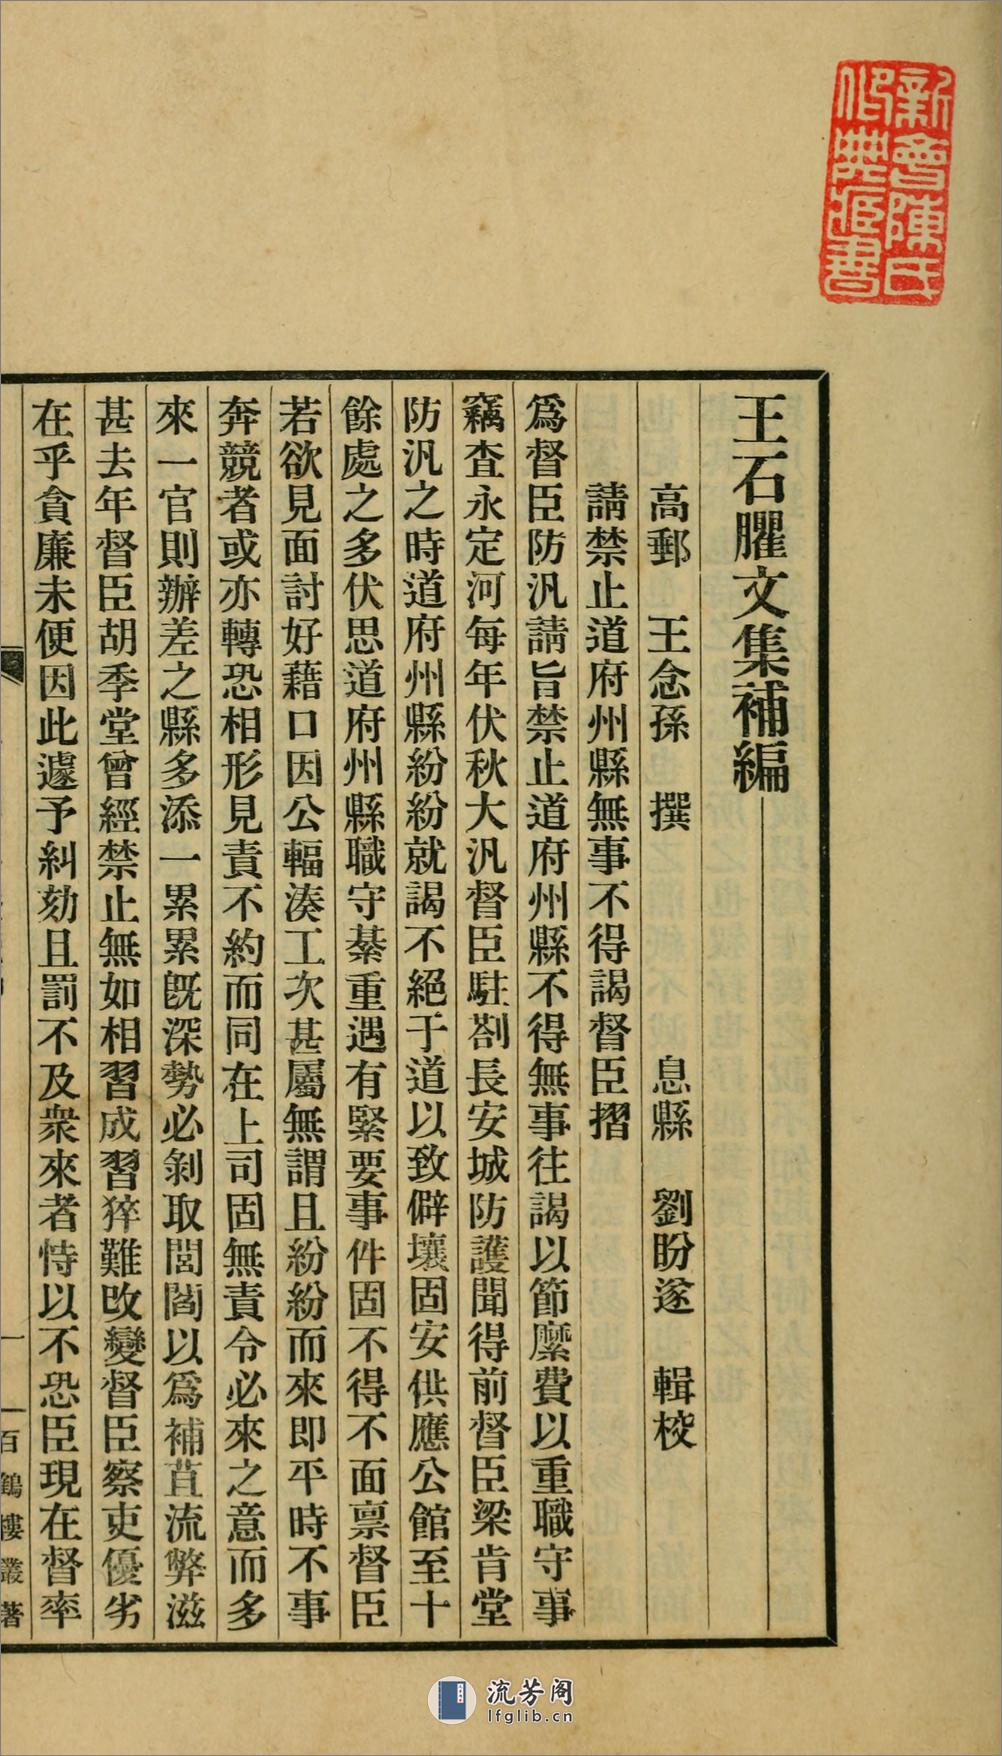 新會陳氏
王石臞文集補編
高郵　王念孫　撰　息縣　劉盼遂　輯校
請禁止道府州縣無事不得謁督臣摺
爲督臣防汛請旨禁止道府州縣不得無事往謁以節糜費以重職守事
竊查永定河每年伏秋大汛督臣駐劄長安城防護聞得前督臣梁肯堂
防汛之時道府州縣紛紛就謁不絕于道以致僻壤固安供應公館至十
餘處之多伏思道府州縣職守綦重遇有緊要事件固不得不面禀督臣
若欲見面討好藉口因公輻湊工次甚屬無謂且紛紛而來即平時不事
奔競者或亦轉恐相形見責不約而同在上司固無責令必來之意而多
來一官則辦差之縣多添一累累既深勢必剝取閭閻以爲補苴流弊滋
甚去年督臣胡季堂曾經禁止無如相習成習猝難改變督臣察吏優劣
在乎貪廉未便因此遽予糾劾且罰不及衆來者恃以不恐臣現在督率
一
百鶴樓叢著
流芳阁
lfglib.cn